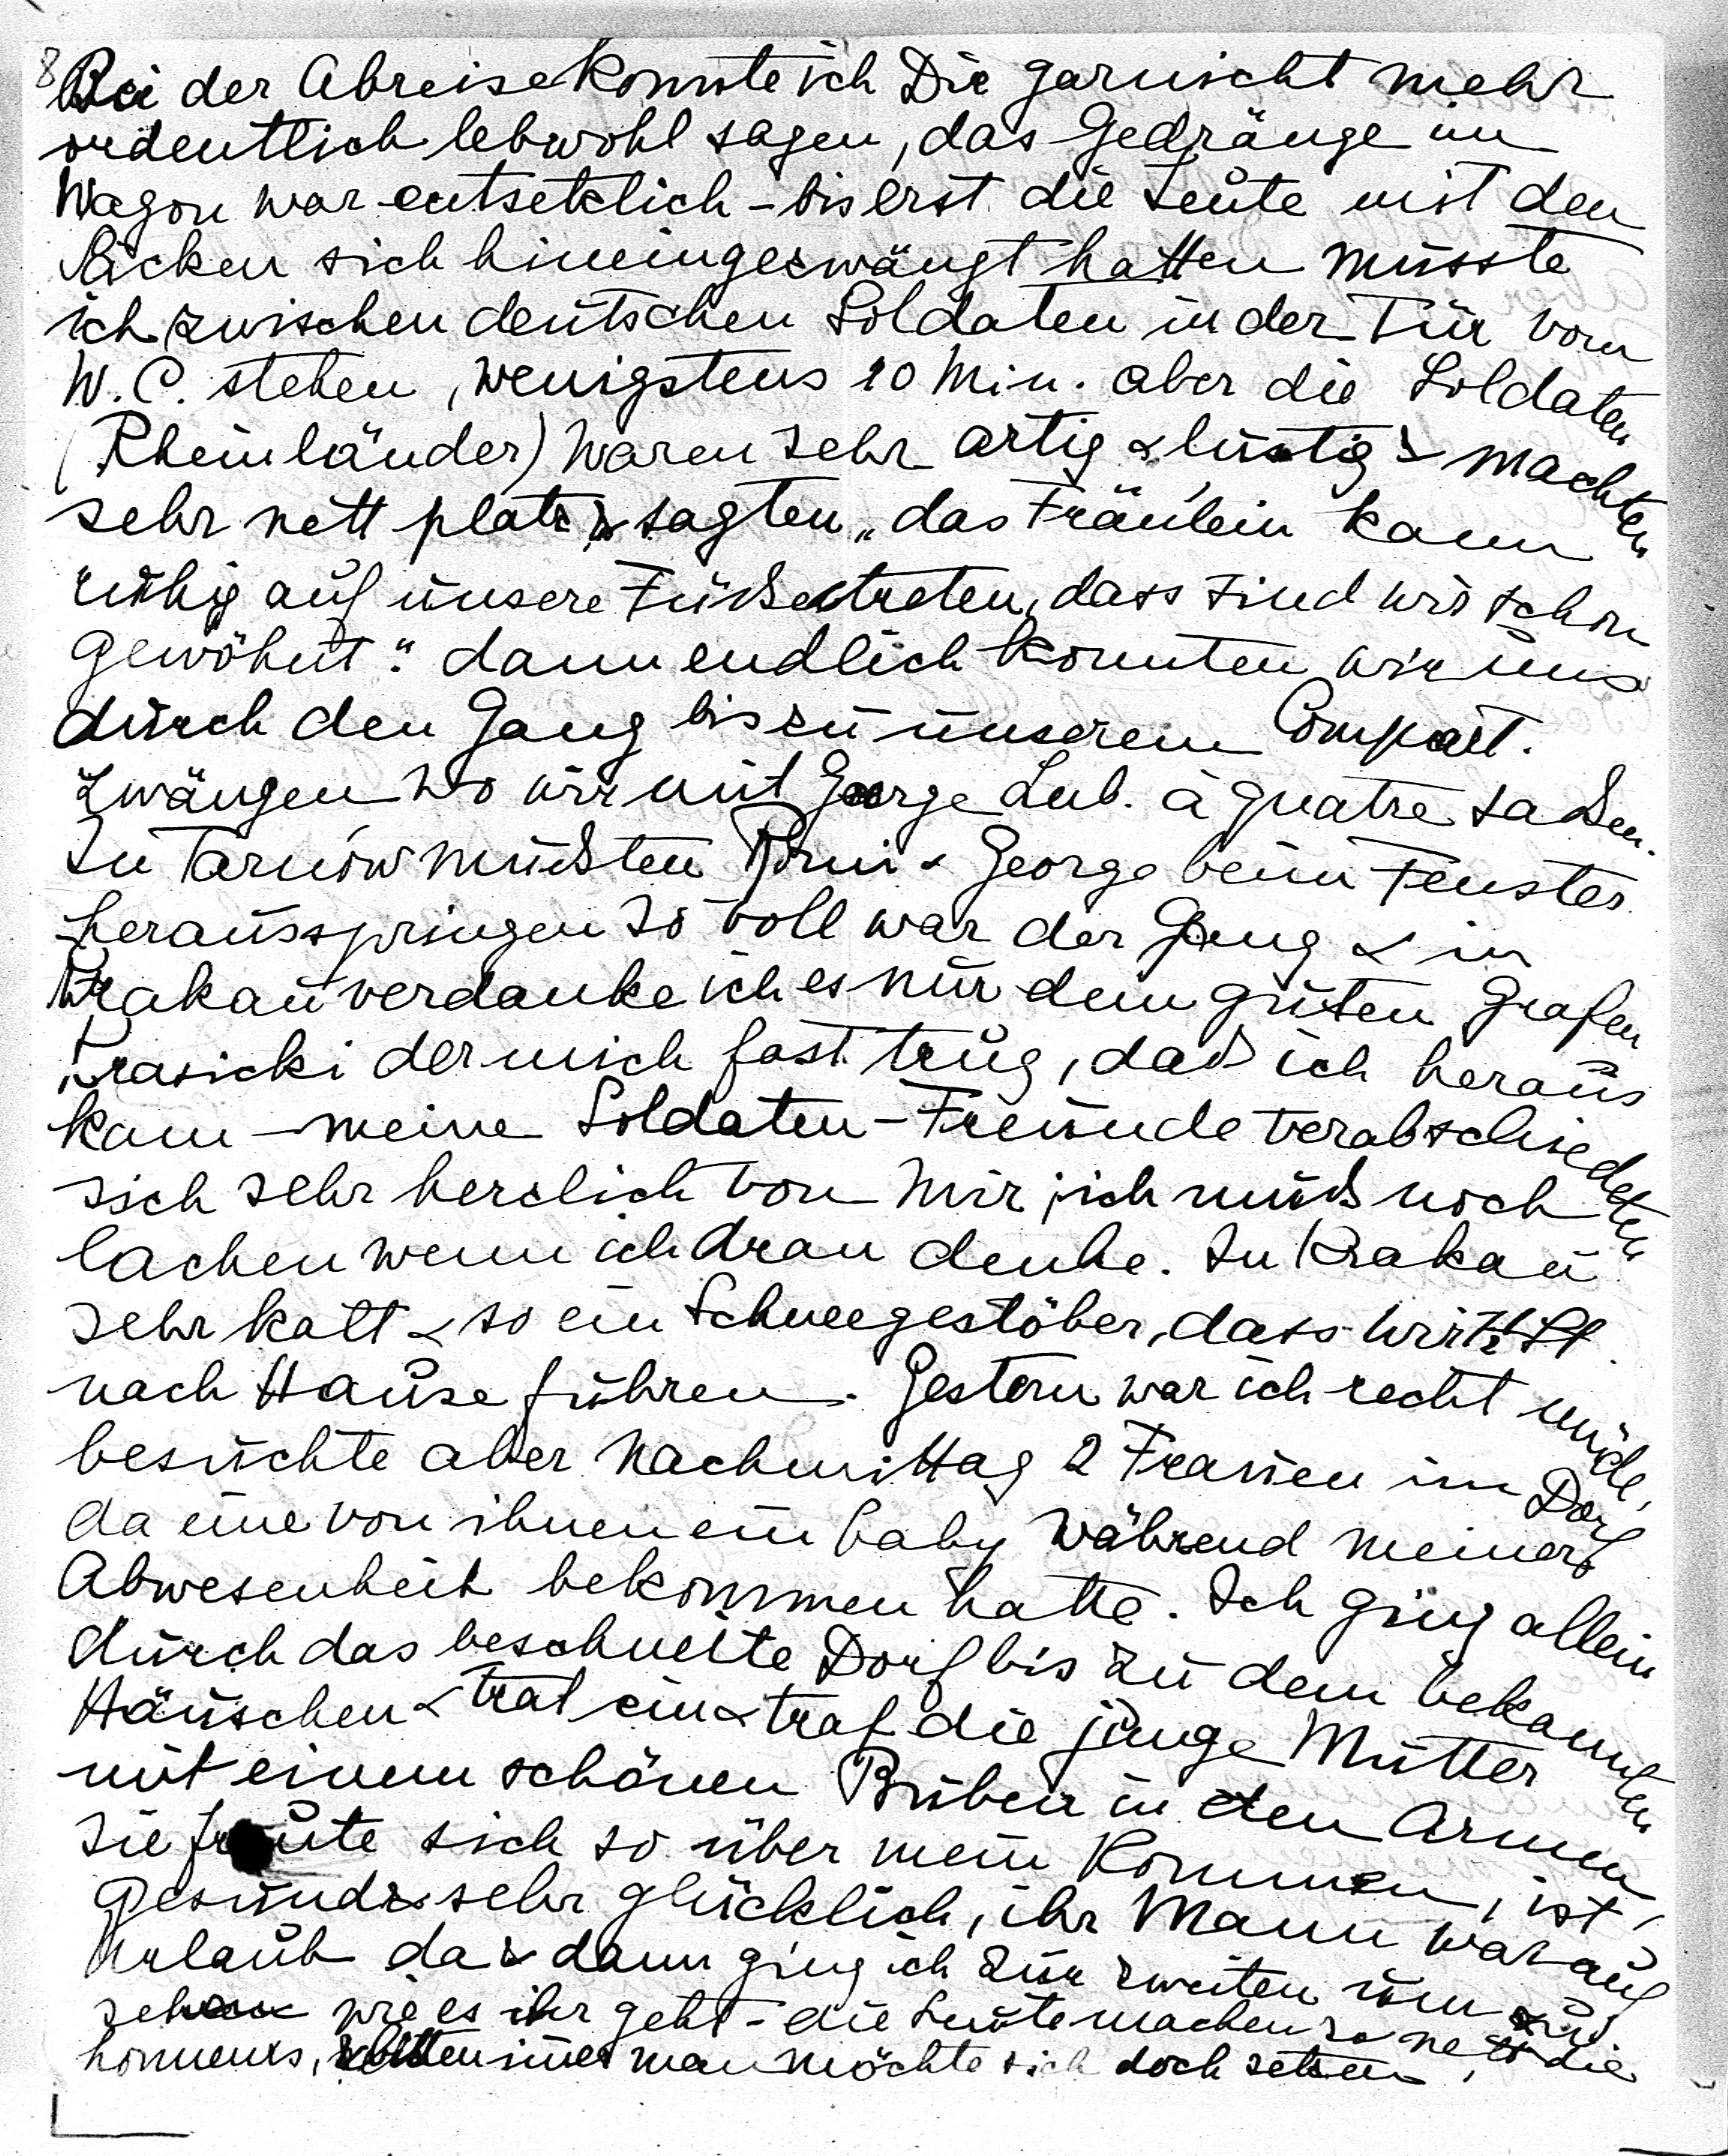 8
Bei der Abreise konnte ich Dir garnicht mehr
ordentlich lebwohl sagen, das Gedränge im
Wagon war entsetzlich – bis erst die Leute mit den
Säcken sich hineingezwängt hatten musste
ich zwischen deutschen Soldaten in der Tür vom
W.C. stehen, wenigstens 10 Min. aber die Soldaten
(Rheinländer) waren sehr artig & lustig & machten
sehr nett platz & sagten „das Fräulein kann
ruhig auf unsere Füße treten, dass sind wir schon
gewöhnt." dann endlich konnten wir uns
durch den Gang bis zu unserem Compart.
zwängen wo wir mit George Lub. à quatre saßen.
In Tarnów mußten Romi & George beim Fenster
herausspringen so voll war der Gang & in
Krakau verdanke ich es nur dem guten Grafen
Krasicki der mich fast trug, daß ich heraus
kam – meine Soldaten-Freunde verabschiedeten
sich sehr herzlich von mir, ich muß noch
lachen wenn ich dran denke. In Krakau
sehr kalt & so ein Schneegestöber, dass wir
nach Hause fuhren. Gestern war ich recht müde,
besuchte aber Nachmittag 2 Frauen im Dorf
da eine von ihnen ein baby während meiner
Abwesenheit bekommen hatte. Ich ging allein
durch das beschneite Dorf bis zu dem bekannten
Häuschen & trat ein & traf die junge Mutter
mit einem schönen Buben in den Armen
sie freute sich so über mein Kommen, ist
gesund & sehr glücklich, ihr Mann war auf
Urlaub da & dann ging ich zur zweiten um zu
sehen wie es ihr geht – die Leute machen so nett die
honneurs, man möchte sich doch setzen,